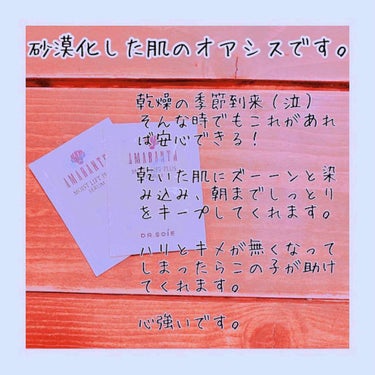 砂漠化した肌のオアシスです。
乾燥の季節到来（泣）
そんな時でもこれがあれ
ば安心できる！
乾いた肌にズーーンと染
み込み、朝までしっとり
をキープしてくれます。
ハリとキメが無くなって
しまったらこの子が助け
てくれます。
心強いです。
AMARANTH
MOIST LIFT
DR.SOIE